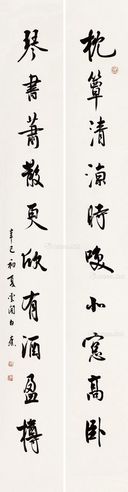 枕簟清涼時曖小窗高臥
琴書蕭散更欣有酒盈樽
辛巳初夏雲間白蕉